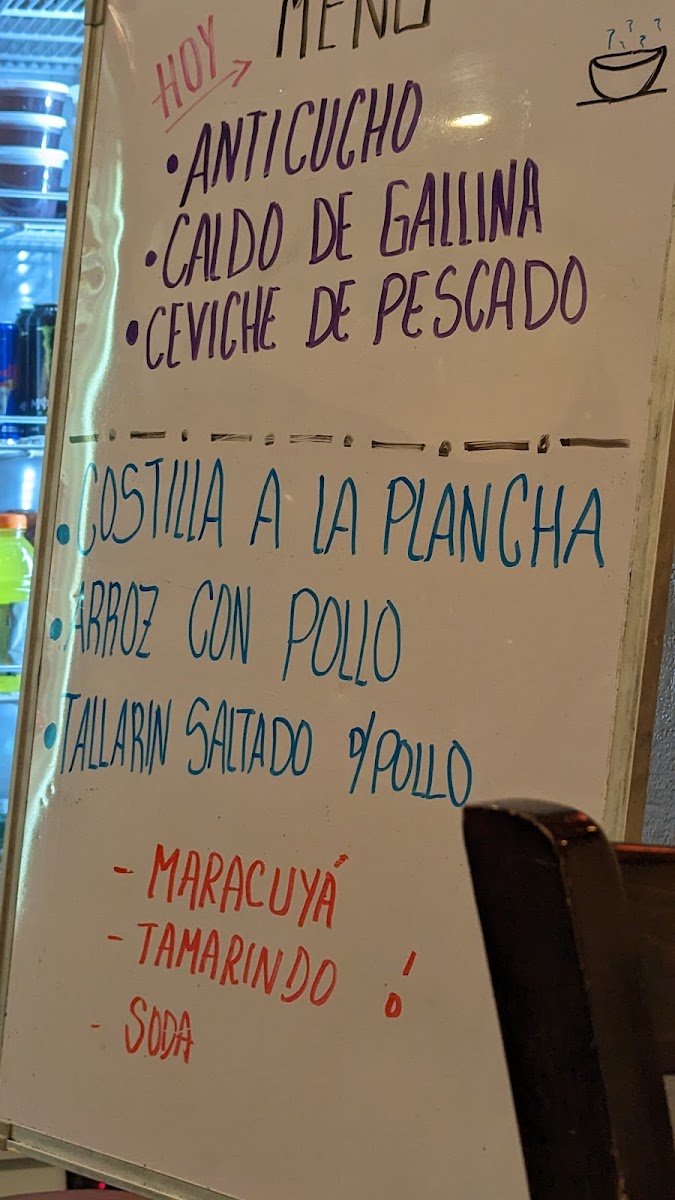 MENÚ
HOY →
• ANTICUCHO
• CALDO DE GALLINA
• CEVICHE DE PESCADO
• COSTILLA A LA PLANCHA
• ARROZ CON POLLO
• TALLARIN SALTADO D/POLLO
- MARACUYÁ
- TAMARINDO !
- SODA